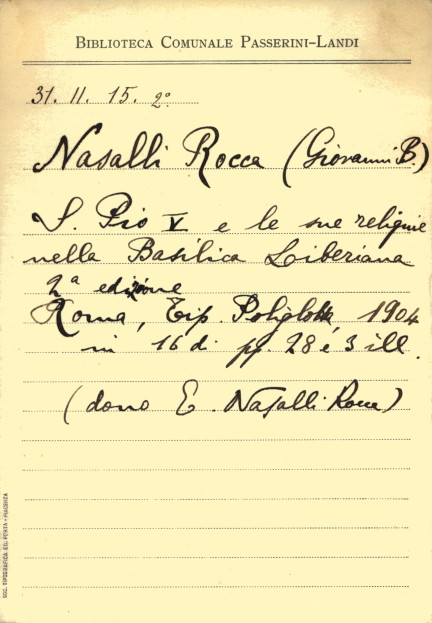 BIBLIOTECA COMUNALE PASSERINI-LANDI
31. II. 15. 2º
Nasalli Rocca (Giovanni B.)
S. Pio V e le sue reliquie
nella Basilica Liberiana
2ª edizione
Roma, Tip. Poliglotta 1904
in 16º pp. 28 e 3 ill.
(dono E. Nasalli Rocca)
SOC. TIPOGRAFICA ED. PORTA - PIACENZA